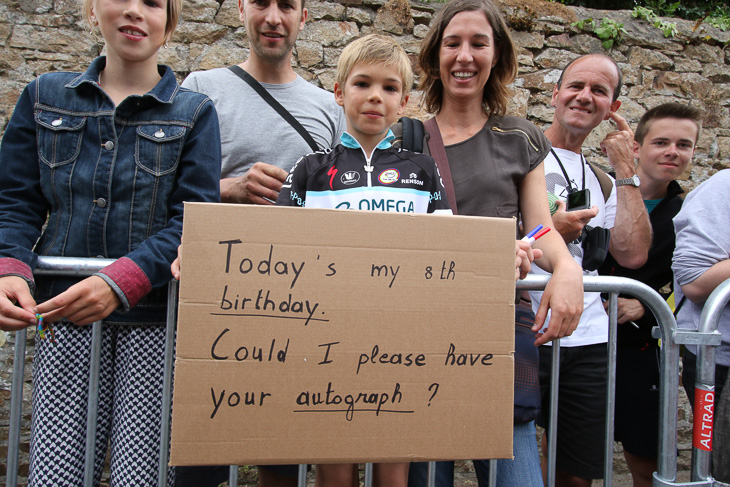 RENSON
OMEGA
Today's my 8th
birthday.
Could I please have
your autograph ?
ALTRAD